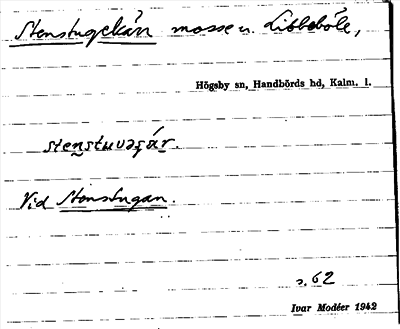 Stenstugekärr mosse u. Libbeböle,
Högsby sn, Handbörds hd, Kalm. l.
stenstuvaʂár.
Vid Stenstugan.
s. 62
Ivar Modéer 1942